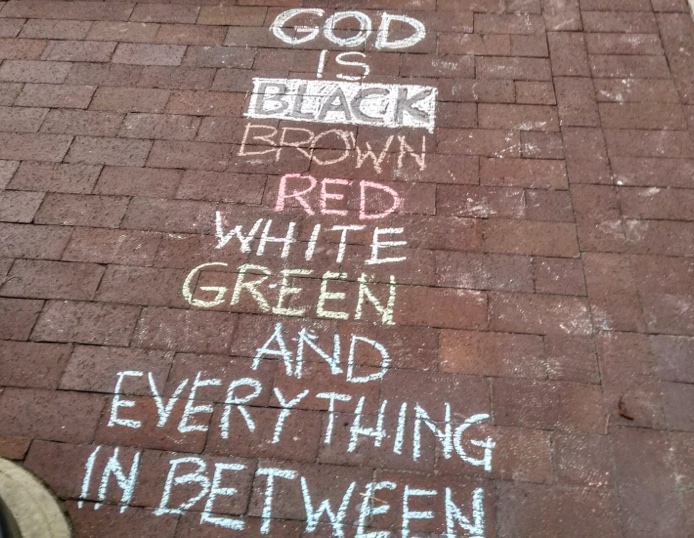 GOD
IS
BLACK
BROWN
RED
WHITE
GREEN
AND
EVERYTHING
IN BETWEEN